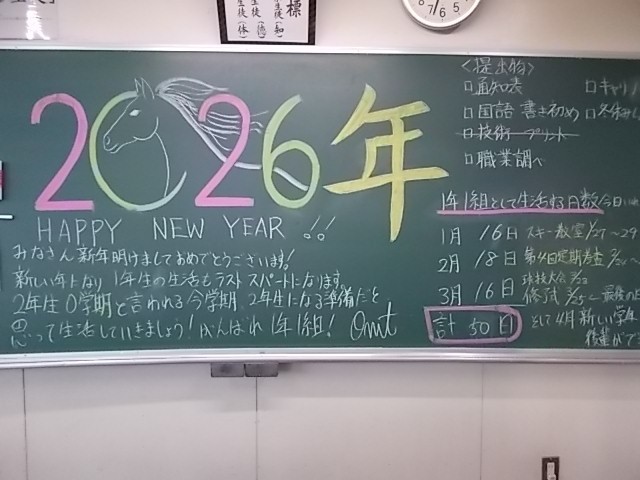 標
生徒(知)
生徒(徳)
生徒(体)
7 6 5
2026年
HAPPY NEW YEAR!!
みなさん新年明けましておめでとうございます!
新しい年になり1年生の生活もラストスパートになります。
2年生0学期と言われる今学期、2年生になる準備だと
思って生活していきましょう!がんばれ1年1組!
<提出物>
□通知表 □キャリ
□国語 書き初め □冬休み
□技術 プリント
□職業調べ
1年1組として生活する日数 今日
1月 16日 スキー教室 1/27〜29
2月 18日 第4回定期考査
3月 16日 球技大会
修了式 3/25←最後の日
計 50日
として4月新しい学年